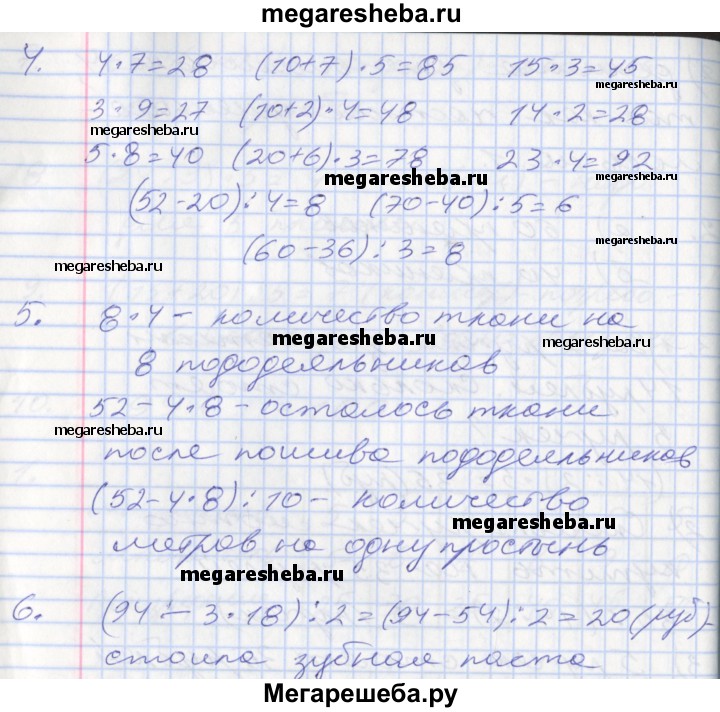 megaresheba.ru
4. 4·7=28 (10+7)·5=85 15·3=45
3·9=27 (10+2)·4=48 14·2=28
megaresheba.ru megaresheba.ru
5·8=40 (20+6)·3=78 23·4=92
megaresheba.ru megaresheba.ru
(52-20):4=8 (70-40):5=6
(60-36):3=8 megaresheba.ru
megaresheba.ru
5. 8·4 - количество ткани на
megaresheba.ru megaresheba.ru
8 пододеяльников
52-4·8 - осталось ткани
megaresheba.ru
после пошива пододеяльников
(52-4·8):10 - количество
megaresheba.ru
метров на одну простынь
megaresheba.ru
6. (94-3·18):2=(94-54):2=20 (руб)-
megaresheba.ru megaresheba.ru
стоила зубная паста
Мегарешеба.ру